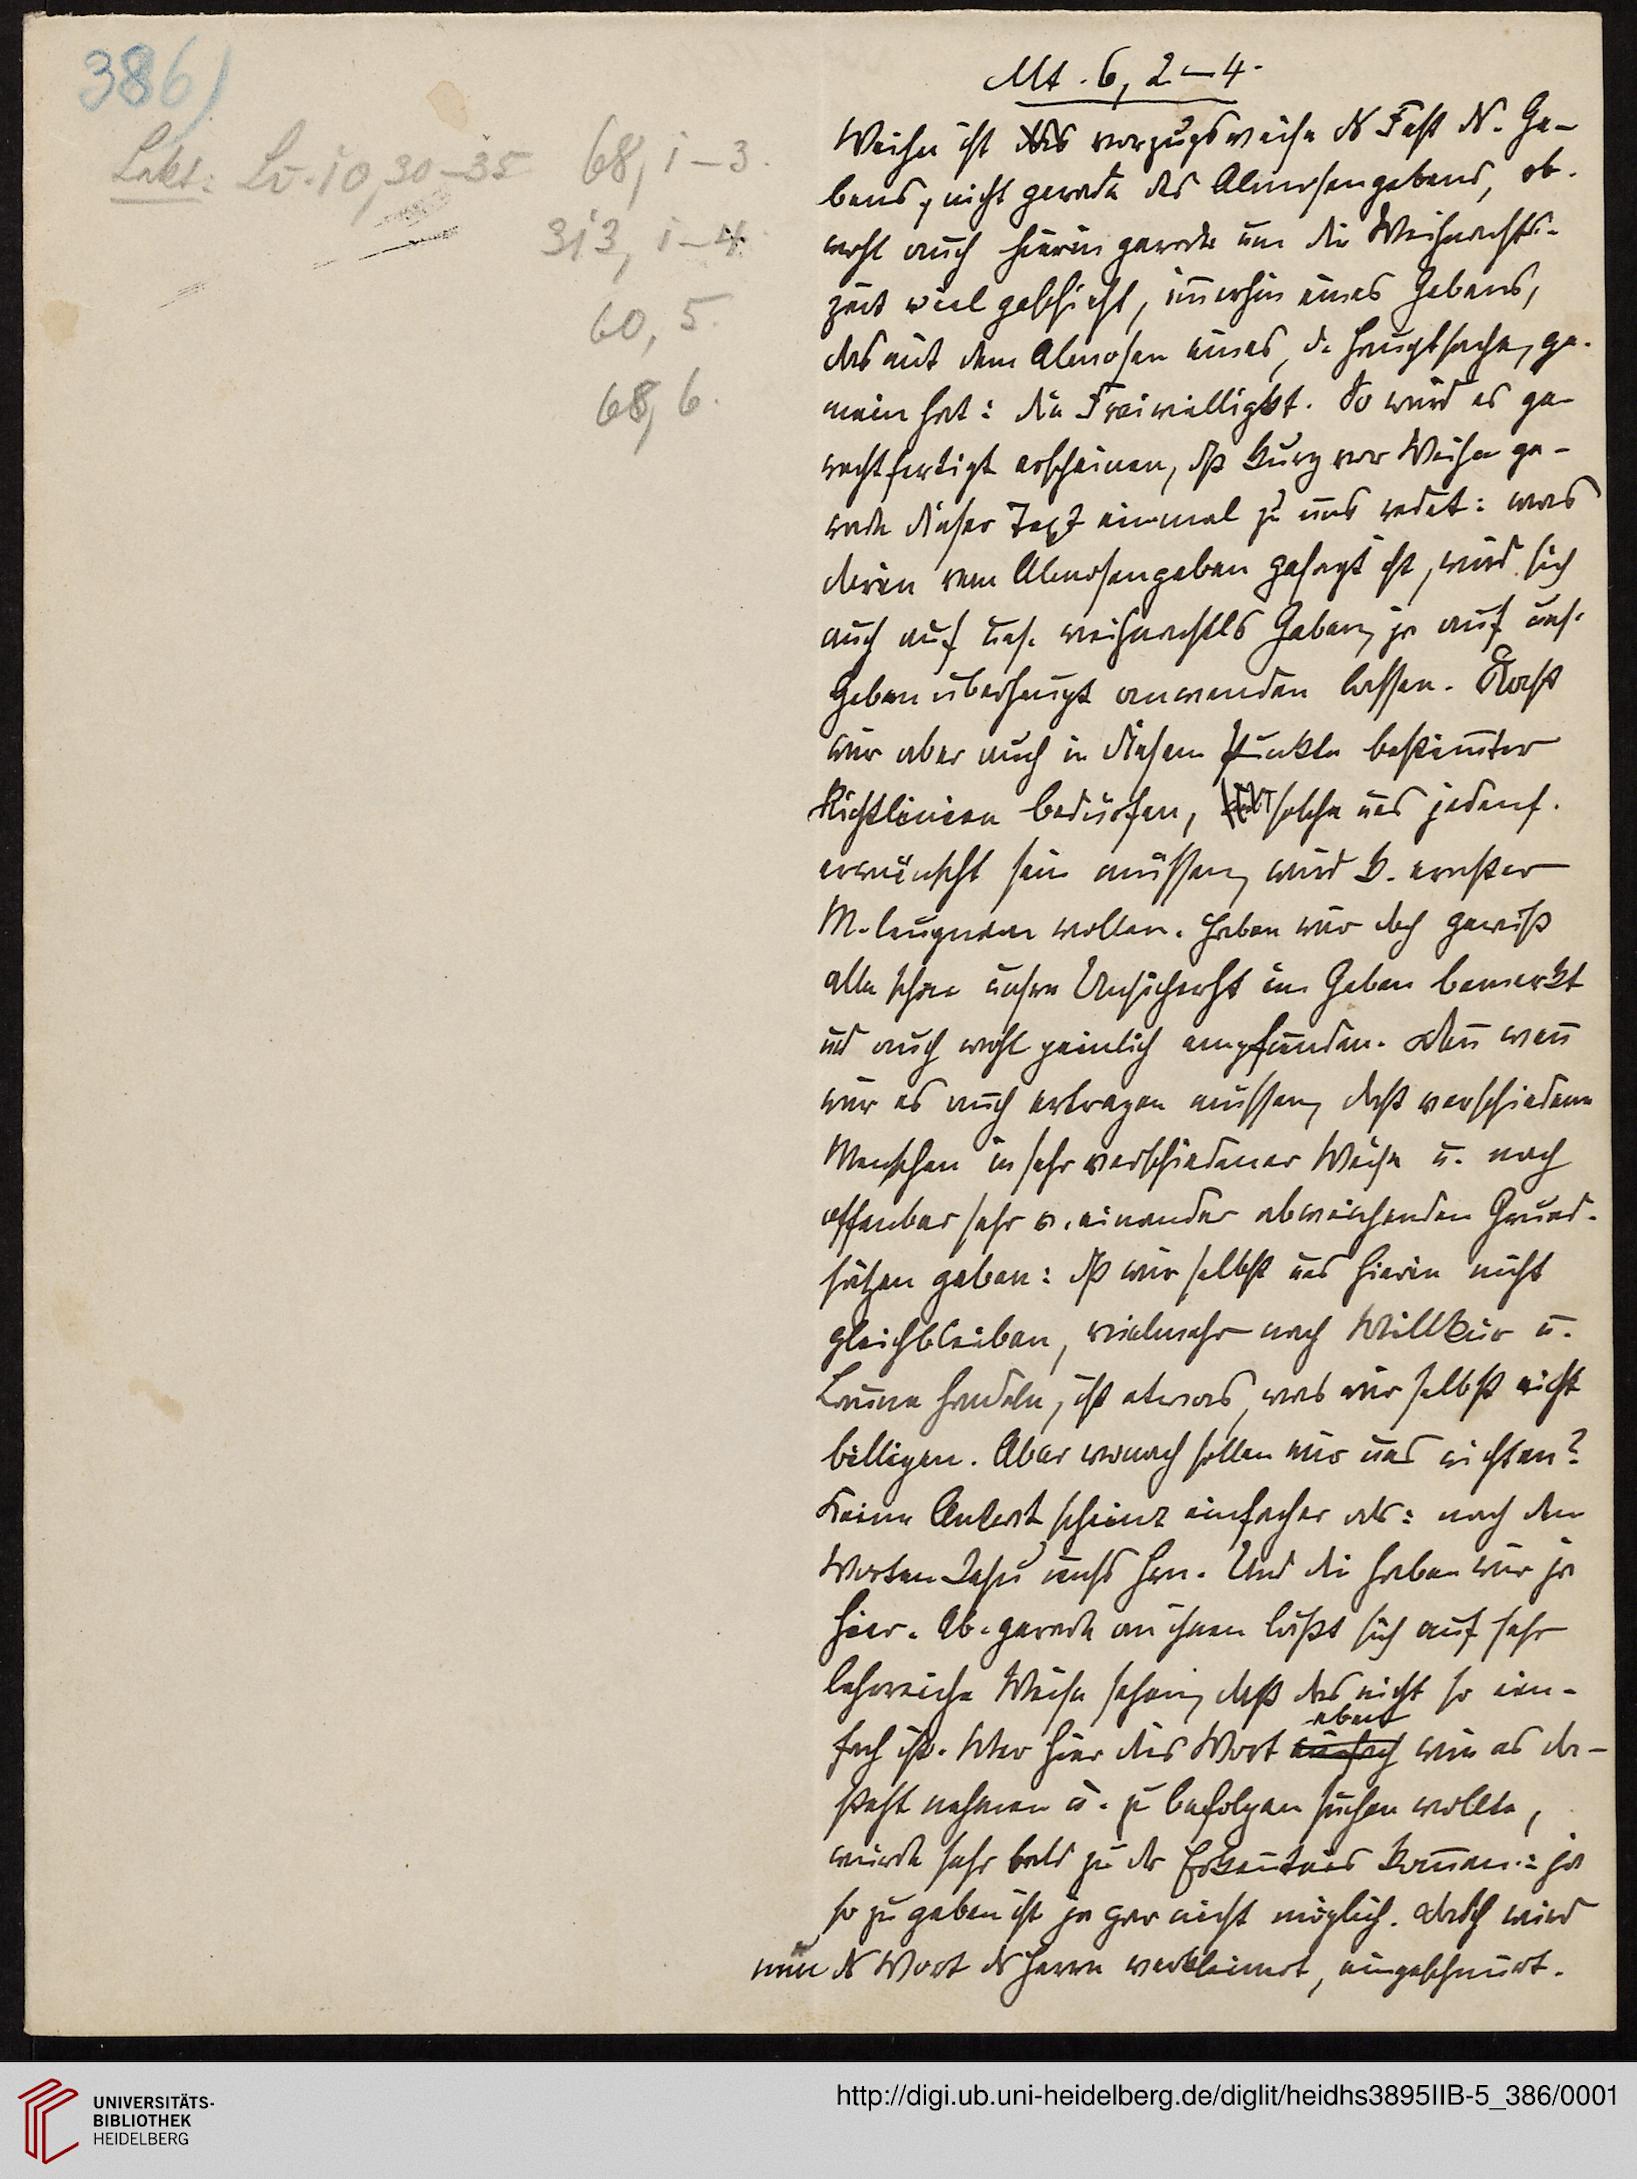 386)
Lekt: Lc. 10, 30–35 68, 1–3.
313, 1–4.
60, 5.
68, 6.
Mt. 6, 2–4.
Weihn ist das vorzugsweise ds Fest ds. Ge-
bens, nicht gerade des Almosengebens, ob-
wohl auch hierin gerade um die Weihnachts-
zeit viel geschieht, im̅erhin eines Gebens,
das mit dem Almosen eines, d. Hauptsache, ge-
mein hat: die Freiwilligkt. So wird es ge-
rechtfertigt erscheinen, dß kurz vor Weihn ge-
rade dieser Text einmal zu uns redet: was
darin vom Almosengeben gesagt ist, wird sich
auch auf uns. weihnachtls Geben, ja auf uns.
Geben überhaupt anwenden lassen. Daß
wir aber auch in diesem Punkte bestim̅ter
Richtlinien bedürfen, solche uns jedenf.
erwünscht sein müssen, wird k. ernster
M. leugnen wollen. Haben wir doch gewiß
alle schon unsre Unsicherht im Geben bemerkt
und auch wohl peinlich empfunden. Den̅ wen̅
wir es auch ertragen müssen, daß verschiedene
Menschen in sehr verschiedener Weise u. nach
offenbar sehr v. einander abweichenden Grund-
sätzen geben: dß wir selbst uns hierin nicht
gleichbleiben, vielmehr nach Willkür u.
Laune handeln, ist etwas, was wir selbst nicht
billigen. Aber wonach sollen wir uns richten?
Keine Antwrt scheint einfacher als: nach den
Worten Jesu unsrs Hrn. Und die haben wir ja
hier. Ab. gerade an ihnen läßt sich auf sehr
lehrreiche Weise sehen, daß das nicht so ein-
fach ist. Wer hier dies Wort einfach eben wie es da-
steht nehmen u. zu befolgen suchen wollte,
würde sehr bald zu der Erken̅tnis kom̅en: ja
so zu geben ist ja gar nicht möglich. Doch wird
nun ds Wort ds Herrn verkleinert, eingeschnürt.
UNIVERSITÄTS-
BIBLIOTHEK
HEIDELBERG
http://digi.ub.uni-heidelberg.de/diglit/heidhs3895IIB-5_386/0001